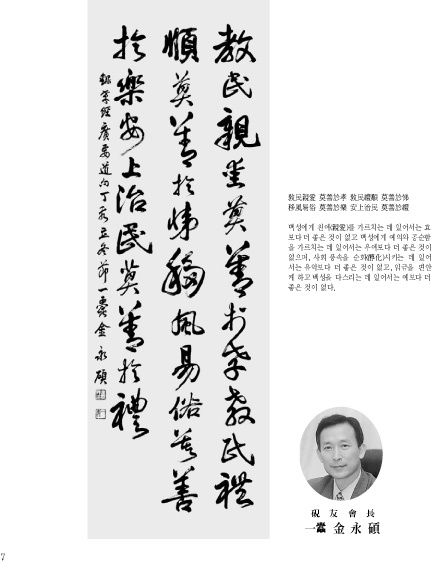 教民親愛莫善於孝教民禮
順莫善於悌移風易俗莫善
於樂安上治民莫善於禮
錄孝經廣要道句丁亥立冬節一蠹金永碩
敎民親愛 莫善於孝 敎民禮順 莫善於悌
移風易俗 莫善於樂 安上治民 莫善於禮
백성에게 친애(親愛)를 가르치는 데 있어서는 효
보다 더 좋은 것이 없고 백성에게 예의와 공손함
을 가르치는 데 있어서는 우애보다 더 좋은 것이
없으며, 사회 풍속을 순화(醇化)시키는 데 있어
서는 음악보다 더 좋은 것이 없고, 위급을 편안
케 하고 백성을 다스리는 데 있어서는 예보다 더
좋은 것이 없다.
硯友會長
一蠹 金永碩
7